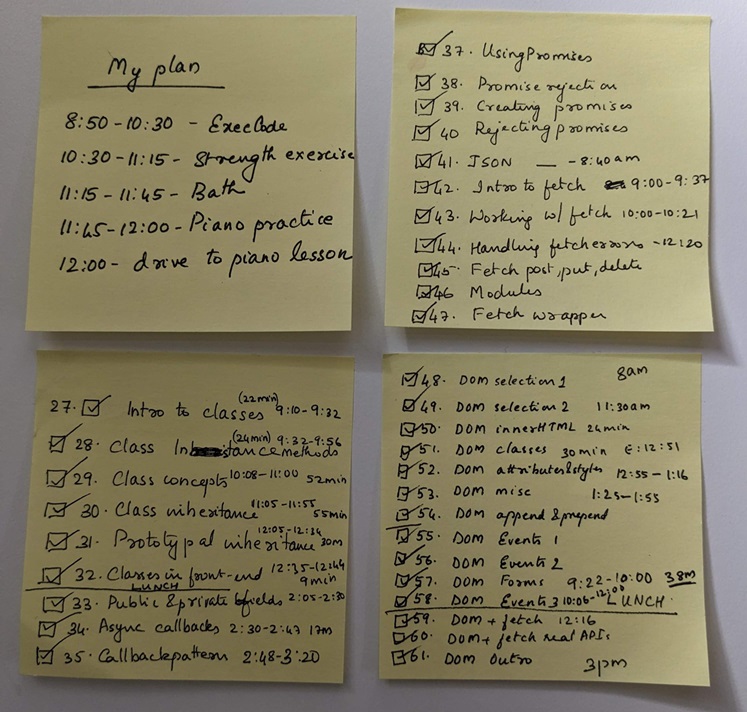 My plan
8:50-10:30 - ExecLode
10:30-11:15 - Strength exercise
11:15 - 11:45 - Bath
11:45-12:00 - Piano practice
12:00 - drive to piano lesson
37. Using Promises
38. Promise rejection
39. Creating promises
40 Rejecting promises
41. JSON — - 8:40am
42. Intro to fetch 9:00-9:37
43. Working w/ fetch 10:00-10:21
44. Handling fetch errors -12:20
45. Fetch post, put, delete
46 Modules
47. Fetch wrapper
27. Intro to classes (22min) 9:10-9:32
28. Class methods (24min) 9:32-9:56
29. Class concepts 10:08-11:00 52min
30. Class inheritance 11:05-11:55 55min
31. Prototypal inheritance 12:05-12:34 30m
32. Classes in front-end 12:35-12:44 9min
LUNCH
33. Public & private fields 2:05-2:30
34. Async callbacks 2:30-2:47 17m
35. Callback pattern 2:48-3:20
48. DOM selection 1 8am
49. DOM selection 2 11:30am
50. DOM innerHTML 24min
51. DOM classes 30min E:12:51
52. DOM attributes & styles 12:55-1:16
53. DOM misc 1:25-1:55
54. DOM append & prepend
55. DOM Events 1
56. DOM Events 2
57. DOM Forms 9:22-10:00 38m
58. DOM Events 3 10:06-12:00 LUNCH.
59. DOM + fetch 12:16
60. DOM + fetch real APIs
61. DOM Outro 3pm